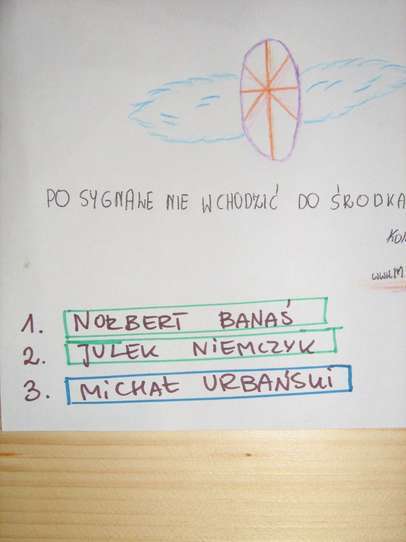 PO SYGNALE NIE WCHODZIĆ DO ŚRODKA
www.M
1. NORBERT BANAŚ
2. JULEK NIEMCZYK
3. MICHAŁ URBAŃSKI